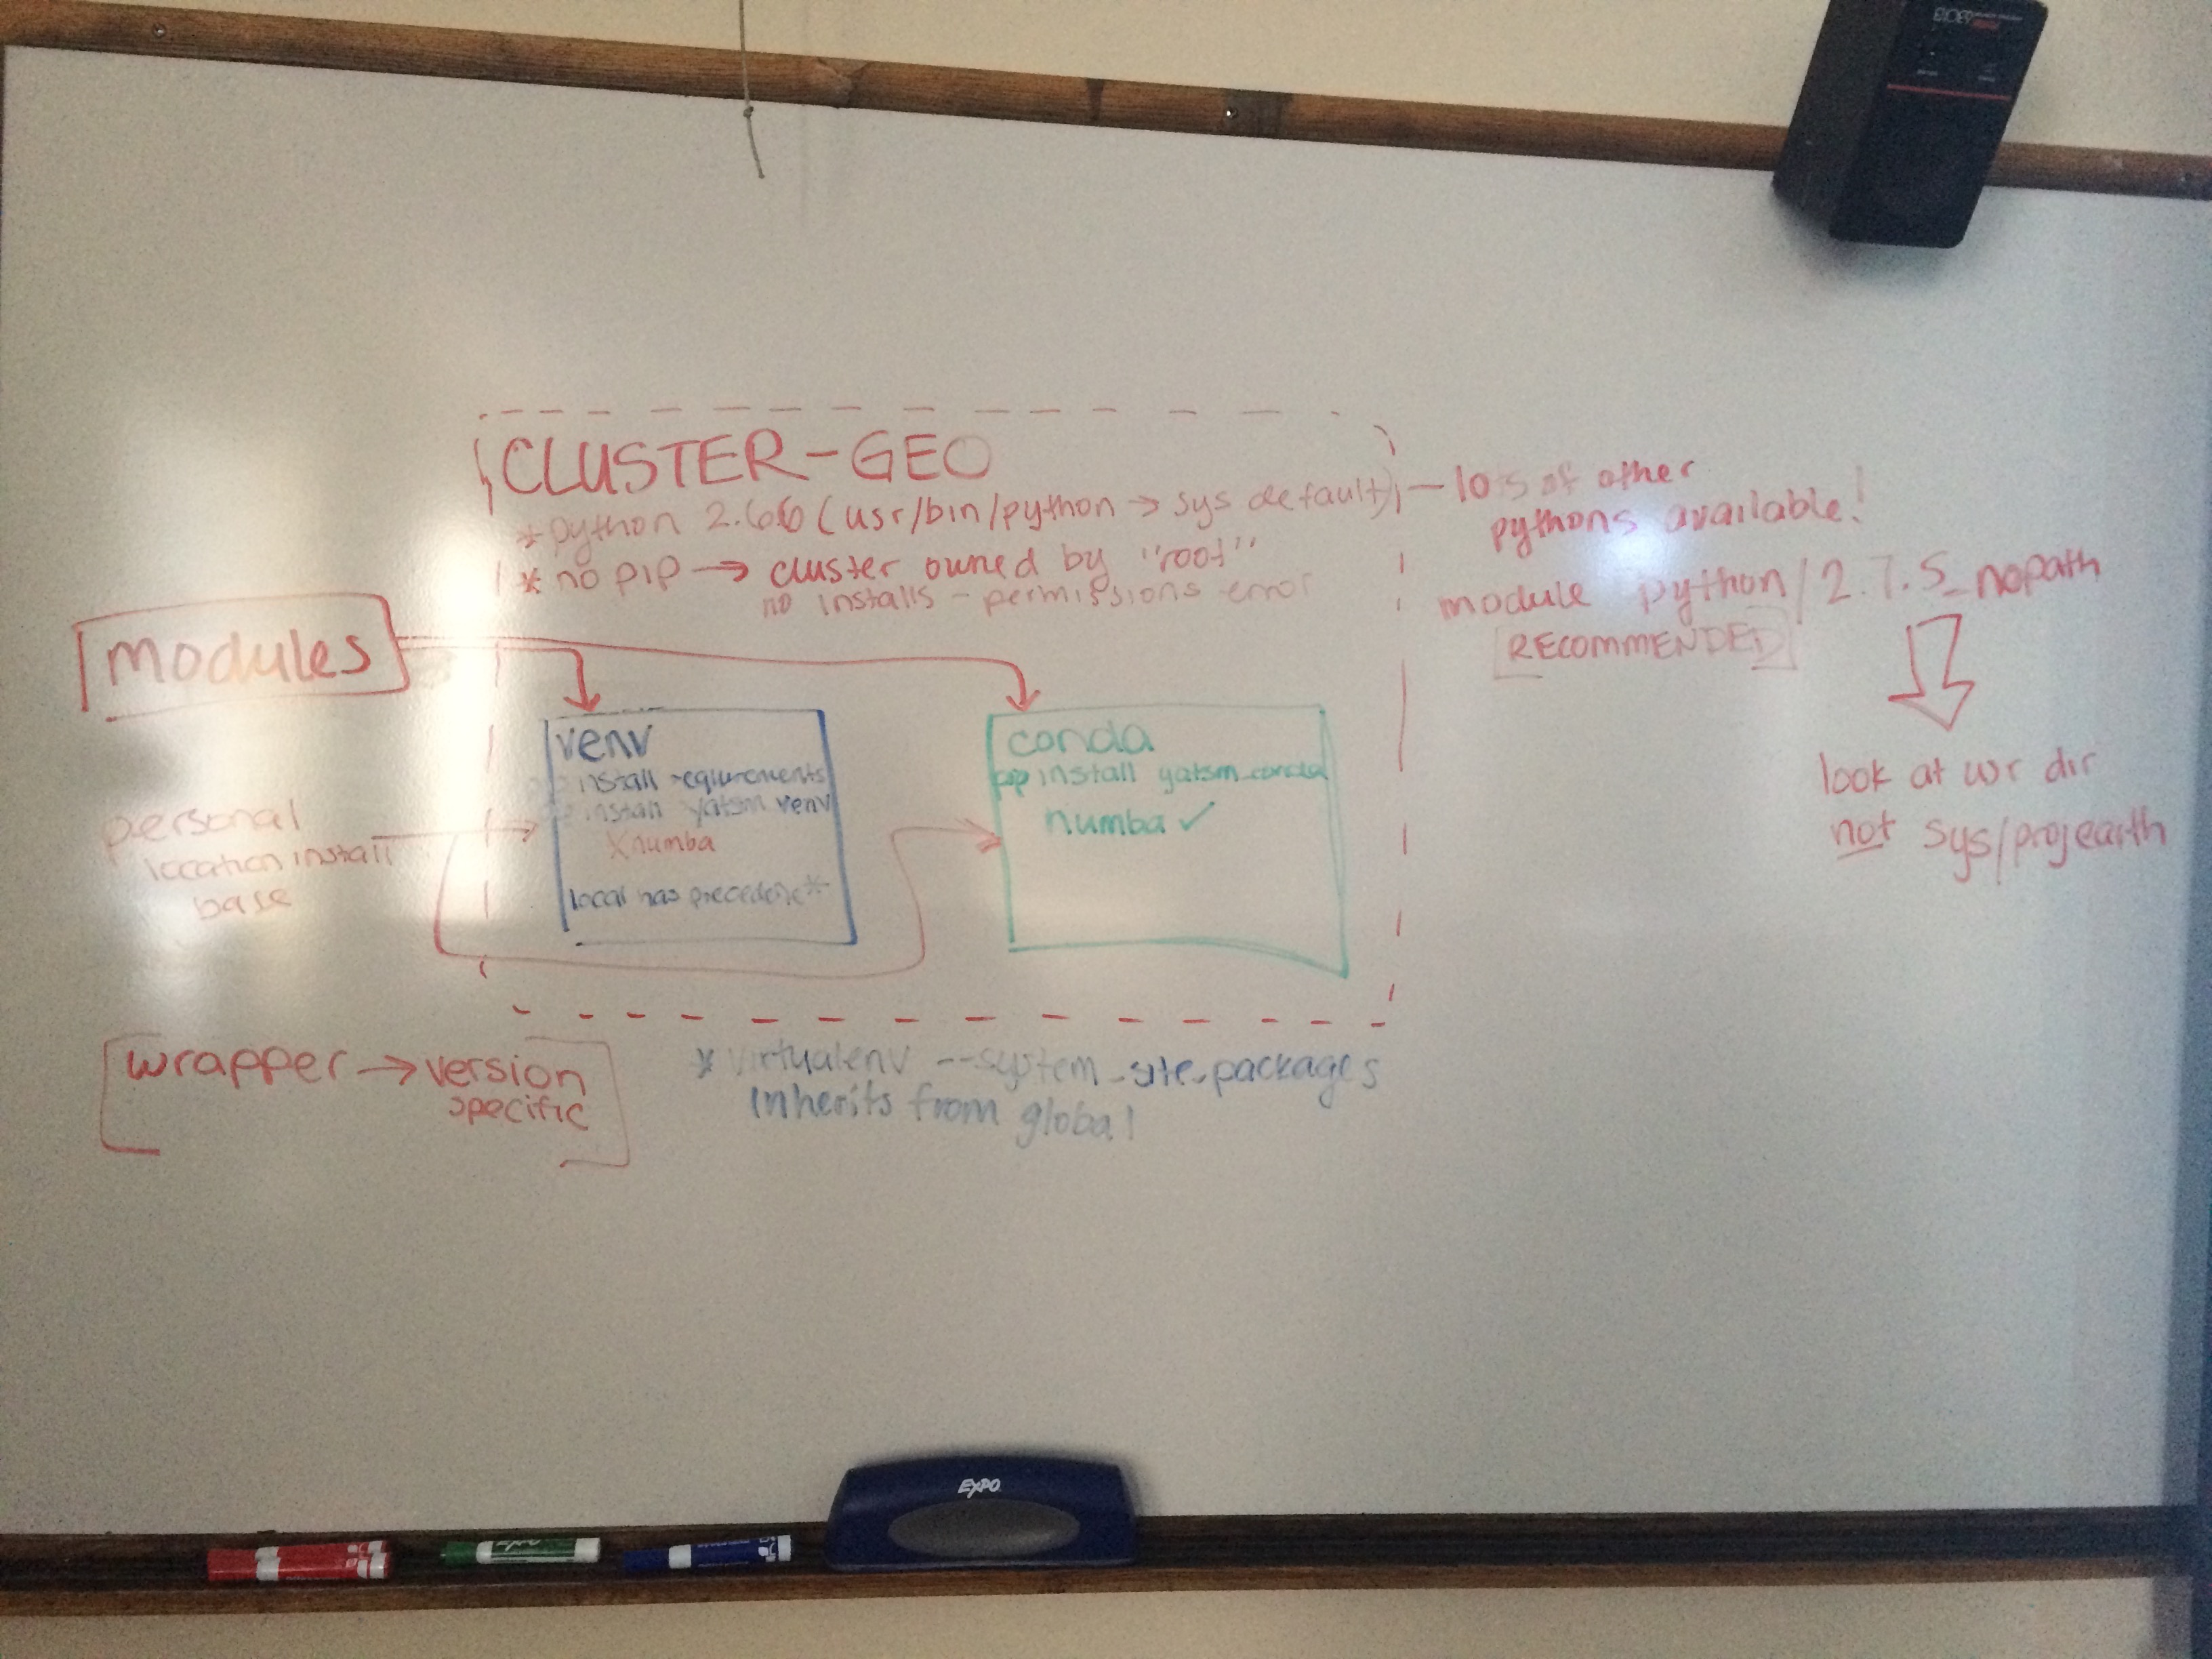 CLUSTER-GEO
*python 2.6.6 (usr/bin/python → sys default) — lots of other
pythons available!
* no pip → cluster owned by "root"
no installs - permissions error
module python/2.7.5_nopath
RECOMMENDED
look at wr dir
not sys/projearth
modules
venv
install reqiurements
install yatsm venv
X numba
local has precedenc*
conda
pip install yatsm_conda
numba ✓
personal
location install
base
wrapper → version
specific
* virtualenv --system-site-packages
inherits from global
EXPO